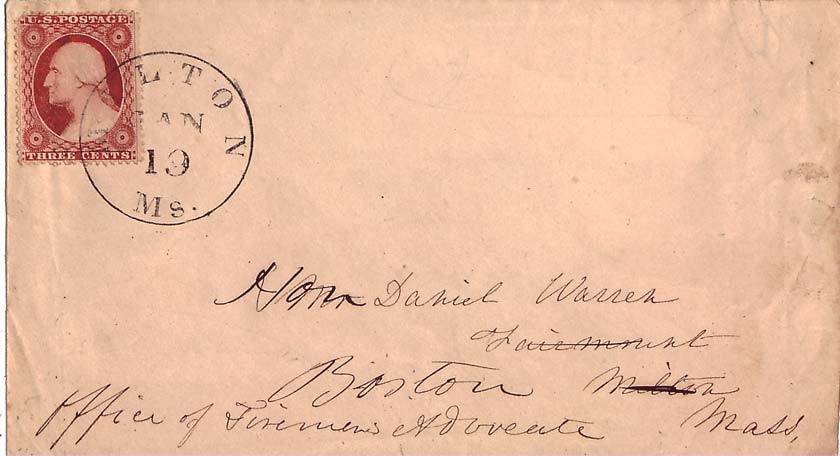 U.S. POSTAGE
THREE CENTS
MILTON
JAN
19
Ms.
Hon Daniel Warren
Fairmount
Boston Milton
Office of Firemen's Advocate Mass,